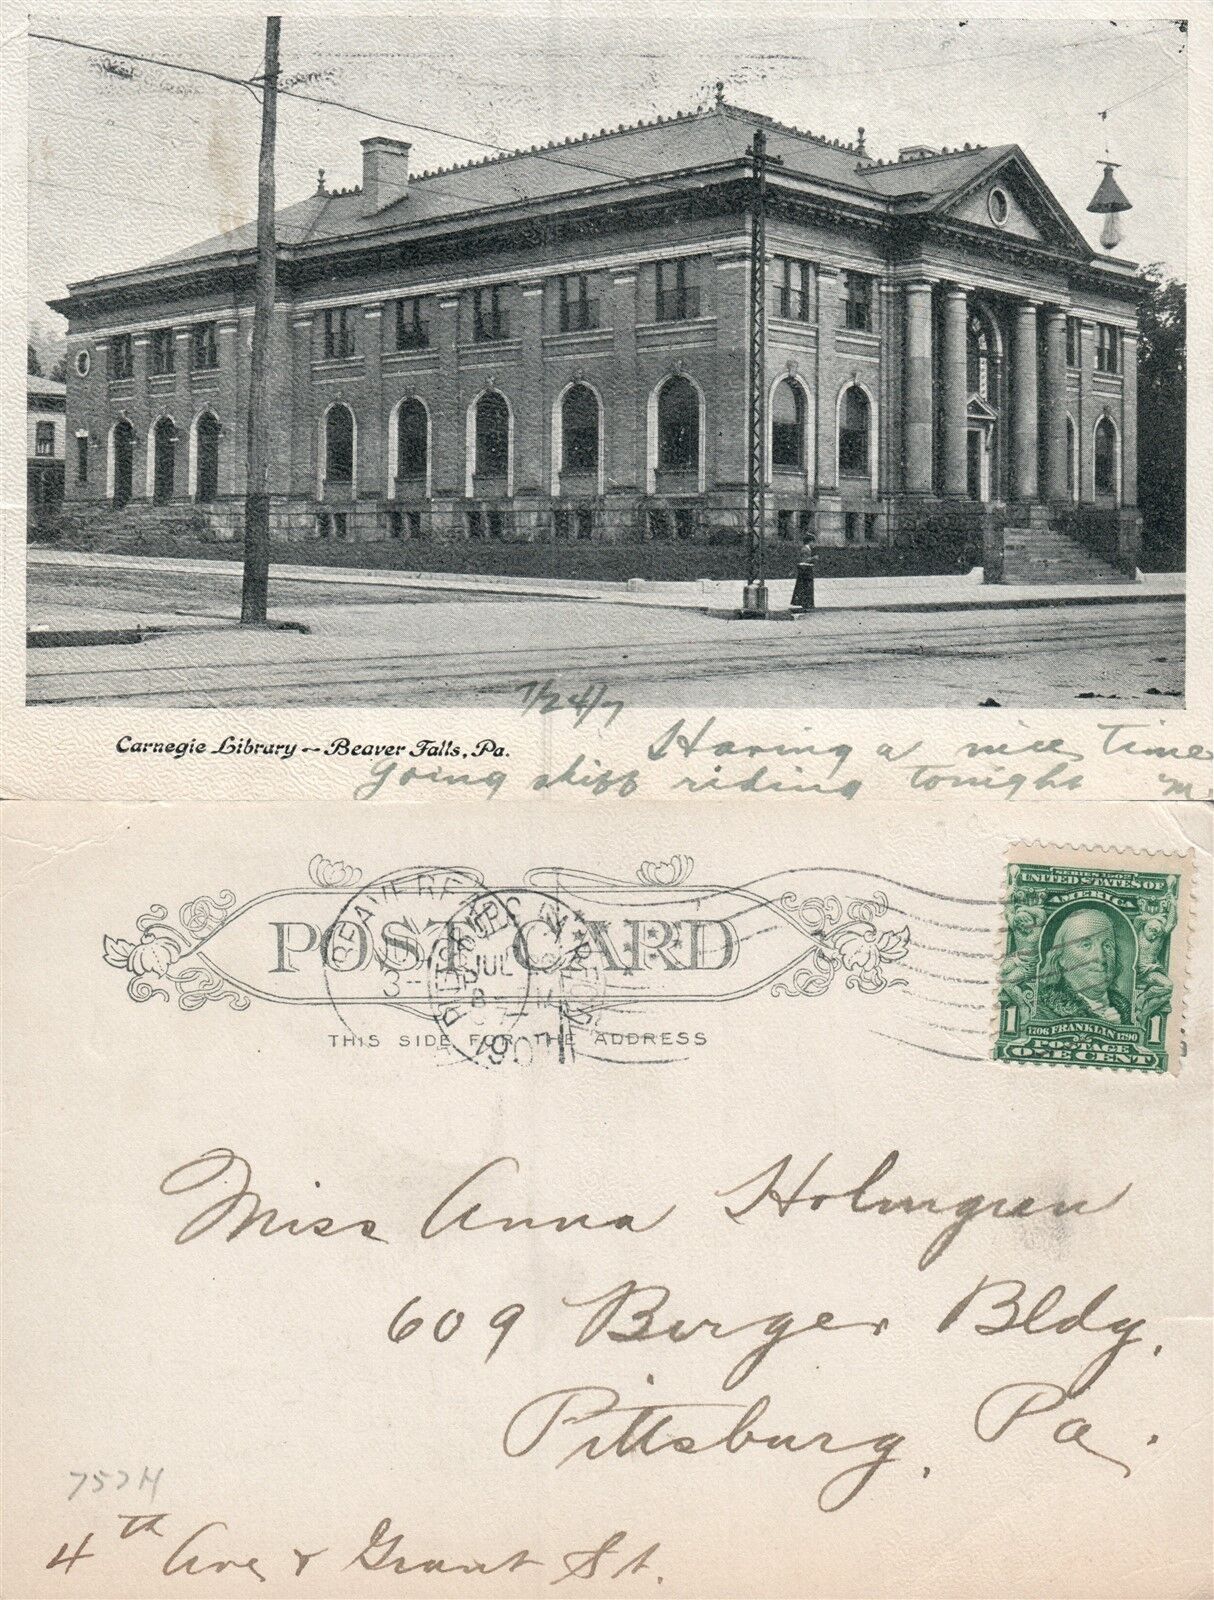 7/24/7
Carnegie Library — Beaver Falls, Pa.
Having a nice time
Going skiff riding tonight M.
POST CARD
THIS SIDE FOR THE ADDRESS
BEAVER FA
JUL
190
SERIES 1902
UNITED STATES OF
AMERICA
1706 FRANKLIN 1790
POSTAGE
1 ONE CENT 1
Miss Anna Holmgren
609 Burger Bldg,
Pittsburg, Pa.
757H
4th Ave & Grant St.